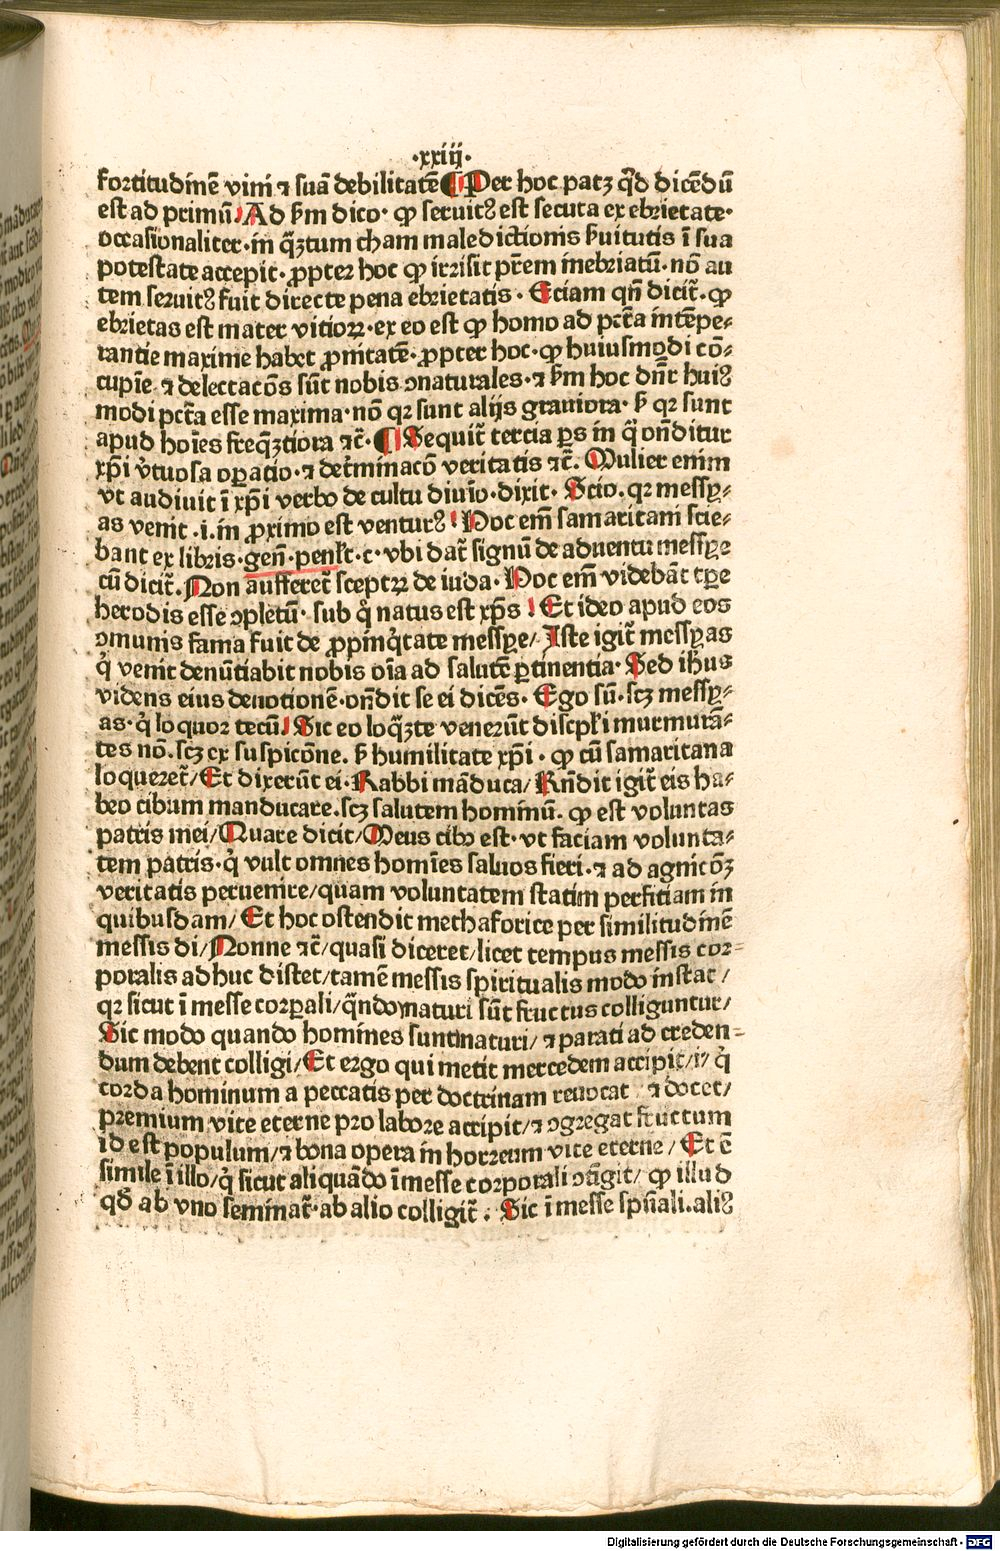 ·xxiij·
fortitudinē vini ⁊ suā debilitatē ¶ Per hoc patꝫ qͥd dicēdū
est ad primū Ad ẜm dico· ꝙ seruitꝰ est secuta ex ebrietate·
occasionaliter·in qͣꝫtum cham maledictionis ẜuitutis ī sua
potestate accepit·ꝓpter hoc ꝙ irrisit pr̄em inebriatū·nō au
tem seruitꝰ fuit directe pena ebrietatis· Eciam qn̄ dicit̄·ꝙ
ebrietas est mater vitioꝝ·ex eo est ꝙ homo ad pctā̄ intēpe⸗
rantie maxime habet ꝓnitatē·ꝓpter hoc·ꝙ huiusmodi cō⸗
cupīe ⁊ delectacōs sūt nobis ꝯnaturales·⁊ ẜm hoc dn̄r huiꝰ
modi pctā esse maxima·nō qꝛ sunt alijs grauiora· ẜ qꝛ sunt
apud hoīes freqͣꝫtiora ⁊c̄·¶ Sequit̄ tercia ꝑs in qͣ on̄ditur
xp̄i v̓tuosa oꝑatio·⁊ det̓minacō veritatis ⁊c̄. Mulier enim
vt audiuit ī xp̄i verbo de cultu diuīo·dixit· Scio.qꝛ messy⸗
as venit .i.in ꝓximo est venturꝰ Hoc em̄ samaritani scie⸗
bant ex libris·gen̄·penl̄t·c·vbi dat̄ signū de aduentu messye
cū dicit̄. Non aufferet̄ sceptꝝ de iuda· Hoc em̄ videbāt tꝑe
herodis esse ꝯpletū· sub qͦ natus est xp̄s Et ideo apud eos
ꝯmunis fama fuit de ꝓpinqͥtate messye/ Iste igit̄ messyas
qͥ venit denūtiabit nobis oīa ad salutē ꝑtinentia· Sed ih̄us
videns eius deuotionē·on̄dit se ei dicēs· Ego sū·scꝫ messy⸗
as·qͥ loquor tecū Sic eo loqͣꝫte venerūt discpl̄i murmurā⸗
tes nō·scꝫ ex suspicōne. ẜ humilitate xp̄i · ꝙ cū samaritana
loqueret̄/ Et dixerūt ei· Rabbi māduca/ Rn̄dit igit̄ eis ha⸗
beo cibum manducare·scꝫ salutem hominū. ꝙ est voluntas
patris mei/ Quare dicit/ Meus cibꝰ est· vt faciam volunta⸗
tem patris·qͥ vult omnes homīes saluos fieri·⁊ ad agnicōꝫ
veritatis peruenire/quam voluntatem statim perfitiam in
quibusdam/ Et hoc ostendit methaforice per similitudinē
messis di/ Nonne ⁊c̄/quasi diceret/licet tempus messis cor⸗
poralis adhuc distet/tamē messis spiritualis modo instat/
qꝛ sicut ī messe corꝑali/qn̄do maturi sūt fructus colliguntur/
Sic modo quando homines sunt maturi/ ⁊ parati ad creden⸗
dum debent colligi/ Et ergo qui metit mercedem accipit/iꝫ qͥ
corda hominum a peccatis per doctrinam reuocat ⁊ docet/
premium vite eterne pro labore accipit/⁊ ꝯgregat fructum
id est populum/⁊ bona opera in horreum vite eterne/ Et ē
simile ī illo/qͥ sicut aliquādo ī messe corporali ꝯtīgit/ ꝙ illud
qd̄ ab vno seminat̄·ab alio colligit̄. Sic ī messe spūali·aliꝰ
Digitalisierung gefördert durch die Deutsche Forschungsgemeinschaft - DFG